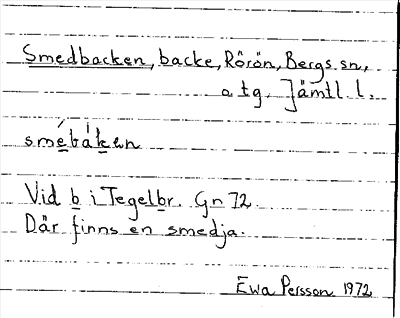 Smedbacken, backe, Rörön, Bergs sn,
a tg. Jämtl. l.
smébáken
Vid b i Tegelbr. Gn 72.
Där finns en smedja.
Ewa Persson 1972